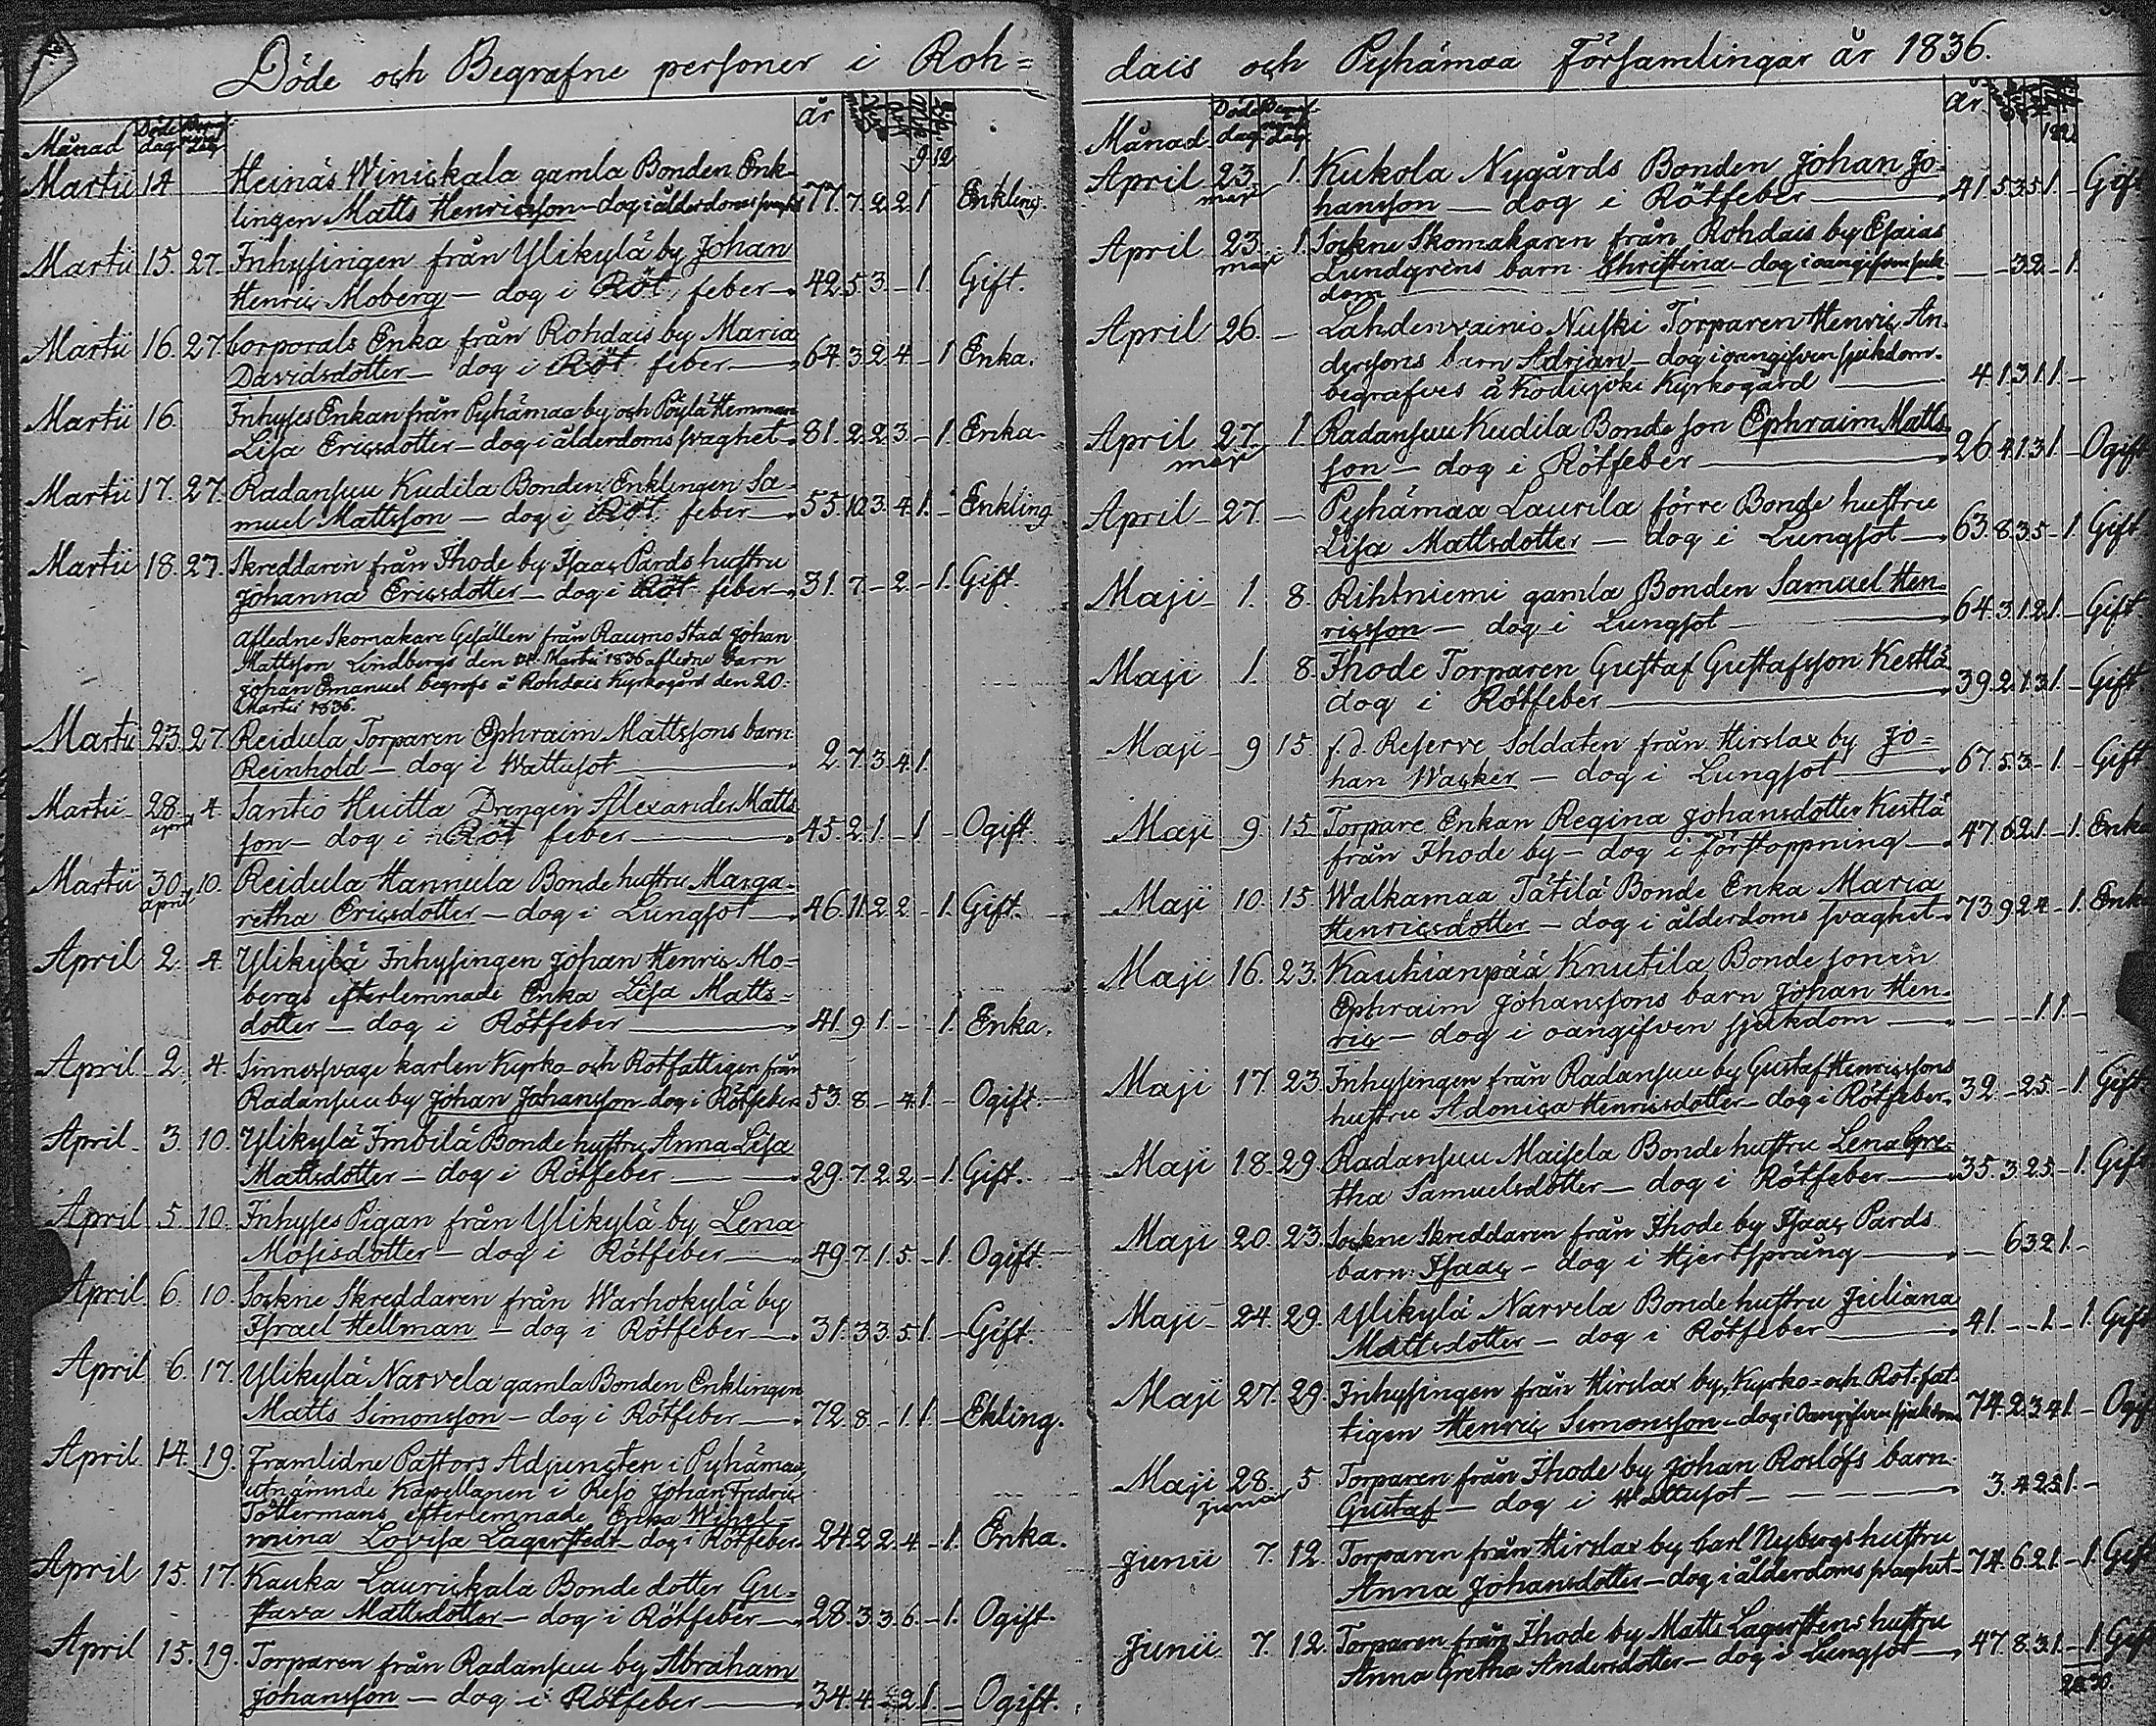 Döde och Begrafne personer i Roh=
Månad Döde dag Begraf dag år
9 12
Martii 14 Heinäs Winickala gamla Bonden Enk-
lingen Matts Henricsson - dog i ålderdoms svaghet 77. 7. 2 2 1 Enkling.
Martii 15. 27. Inhysingen från Ylikylä by Johan
Henric Moberg - dog i Röt feber 42. 5 3. - 1. Gift.
Martii 16. 27. Corporals Enka från Rohdais by Maria
Davidsdotter - dog i Röt feber 64. 3. 2. 4. - 1 Enka.
Martii 16. Inhyses Enkan från Pyhämaa by och Pöylä Hemman
Lisa Ericsdotter - dog i ålderdoms svaghet 81. 2. 2 3. - 1. Enka
Martii 17. 27. Radansuu Kudila Bonden Enklingen Sa-
muel Mattsson - dog i Röt feber 55. 10. 3. 4. 1. - Enkling
Martii 18. 27. Skreddaren från Ihode by Isaac Pards hustru
Johanna Ericsdotter - dog i Röt feber 31. 7. - 2. - 1. Gift.
Afledne Skomakare Gesällen från Raumo Stad Johan
Mattsson Lindbergs den 14. Martii 1836 afledne barn
Johan Emanuel begrofs å Rohdais Kyrkogård den 20.
Martii 1836.
Martii 23. 27. Reidula Torparen Ephraim Mattssons barn
Reinhold - dog i Wattusot 2. 7. 3. 4. 1.
Martii 28. april 4. Santio Huitla Drengen Alexander Matts
son - dog i Röt feber 45. 2. 1. - 1 - Ogift.
Martii 30. april 10. Reidula Hannula Bonde hustru Marga-
retha Ericsdotter - dog i Lungsot 46. 11. 2 2 - 1. Gift.
April 2. 4. Ylikylä Inhysingen Johan Henric Mo-
bergs efterlemnade Enka Lisa Matts-
dotter - dog i Rötfeber 41. 9. 1. - - 1. Enka.
April 2. 4. Sinnessvage karlen Kyrko och Rotfattigen från
Radansuu by Johan Johansson - dog i Rötfeber 53. 8. - 4. 1. - Ogift.
April 3. 10. Ylikylä Imbilä Bonde hustru Anna Lisa
Mattsdotter - dog i Rötfeber 29. 7. 2. 2. - 1. Gift.
April 5. 10. Inhyses Pigan från Ylikylä by Lena
Mosisdotter - dog i Rötfeber 49. 7. 1. 5. - 1. Ogift.
April 6. 10. Sockne Skreddaren från Warhokylä by
Israel Hellman - dog i Rötfeber 31. 3 3. 5 1. - Gift.
April 6. 17. Ylikylä Narvela gamla Bonden Enklingen
Matts Simonsson - dog i Rötfeber 72. 8. - 1. 1. - Ekling.
April 14. 19. Framlidne Pastors Adjuncten i Pyhämaa,
utnämnde Kapellanen i Reso Johan Fredric
Töttermans efterlemnade Enka Wihel-
mina Lovisa Lagerstedt - dog i Rötfeber 24. 2. 2. 4. - 1. Enka.
April 15. 17. Kauka Laurickala Bonde dotter Gu-
stava Mattsdotter - dog i Rötfeber 28. 3. 3. 6. - 1. Ogift.
April 15. 19. Torparen från Radansuu by Abraham
Johansson - dog i Rötfeber 34. 4. - 2 1. - Ogift.
dais och Pyhämaa Församlingar år 1836.
Månad Döde dag Begraf dag år
April 23 maji 1. Kukola Nygårds Bonden Johan Jo-
hansson - dog i Rötfeber 41. 5 3 5 1. - Gift
April 23. maji 1. Sockne Skomakaren från Rohdais by Esaias
Lundgrens barn Christina - dog i oangifven sjuk-
dom - - 3 2. - 1.
April 26. - Lahdenvainio Nuski Torparen Henric An-
derssons barn Adrian - dog i oangifven sjukdom.
begrafves å Kodisjoki Kyrkogård 4. 1. 3 1. 1. -
April 27. maji 1 Radansuu Kudila Bonde son Ephraim Matts
son - dog i Rötfeber 26. 4. 1. 3. 1. - Ogift
April 27. - Pyhämaa Laurila förre Bonde hustru
Lisa Mattsdotter - dog i Lungsot 63. 8. 3 5 - 1. Gift
Maji 1. 8. Rihtniemi gamla Bonden Samuel Hen-
ricsson - dog i Lungsot 64. 3. 1. 2 1. - Gift
Maji 1. 8. Ihode Torparen Gustaf Gustafsson Kestlä
dog i Rötfeber 39. 2. 1. 3 1. - Gift
Maji 9 15. f.d. Reserve Soldaten från Hirslax by Jo-
han Wacker - dog i Lungsot 67. 5. 3 - 1. - Gift
Maji 9 15. Torpare Enkan Regina Johansdotter Kestlä
från Ihode by - dog i förstoppning 47. 6 2 1. - 1. Enka
Maji 10. 15. Walkamaa Tätilä Bonde Enka Maria
Henricsdotter - dog i ålderdoms svaghet 73. 9 2 4 - 1. Enka
Maji 16. 23. Kauhianpää Knutila Bonde sonen
Ephraim Johanssons barn Johan Hen-
ric - dog i oangifven sjukdom - - - 1 1. -
Maji 17. 23. Inhysingen från Radansuu by Gustaf Henricssons
hustru Adonica Henricsdotter - dog i Rötfeber 32. - 2 5. - 1. Gift
Maji 18. 29. Radansuu Maisela Bonde hustru Lena Gre-
tha Samuelsdotter - dog i Rötfeber 35. 3. 2 5. - 1. Gift
Maji 20. 23. Sockne Skreddaren från Ihode by Isaac Pards
barn Isaac - dog i Hjertsprång - 6 3 2 1. -
Maji 24. 29. Ylikylä Narvela Bonde hustru Juliana
Mattsdotter - dog i Rötfeber 41. - - 1. - 1. Gift
Maji 27. 29. Inhysingen från Hirslax by, Kyrko- och Rot-fat-
tigen Henric Simonsson - dog i Oangifven sjukdom 74. 2. 3 4 1. - Ogift
Maji 28. junii 5 Torparen från Ihode by Johan Roslöfs barn
Gustaf - dog i Wattusot 3. 4. 2 5 1. -
Junii 7. 12. Torparen från Hirslax by Carl Nybergs hustru
Anna Johansdotter - dog i ålderdoms svaghet 74. 6. 2 1. - 1. Gift
Junii 7. 12. Torparen från Ihode by Matts Lagerstens hustru
Anna Gretha Andersdotter - dog i Lungsot 47. 8. 3 1. - 1 Gift